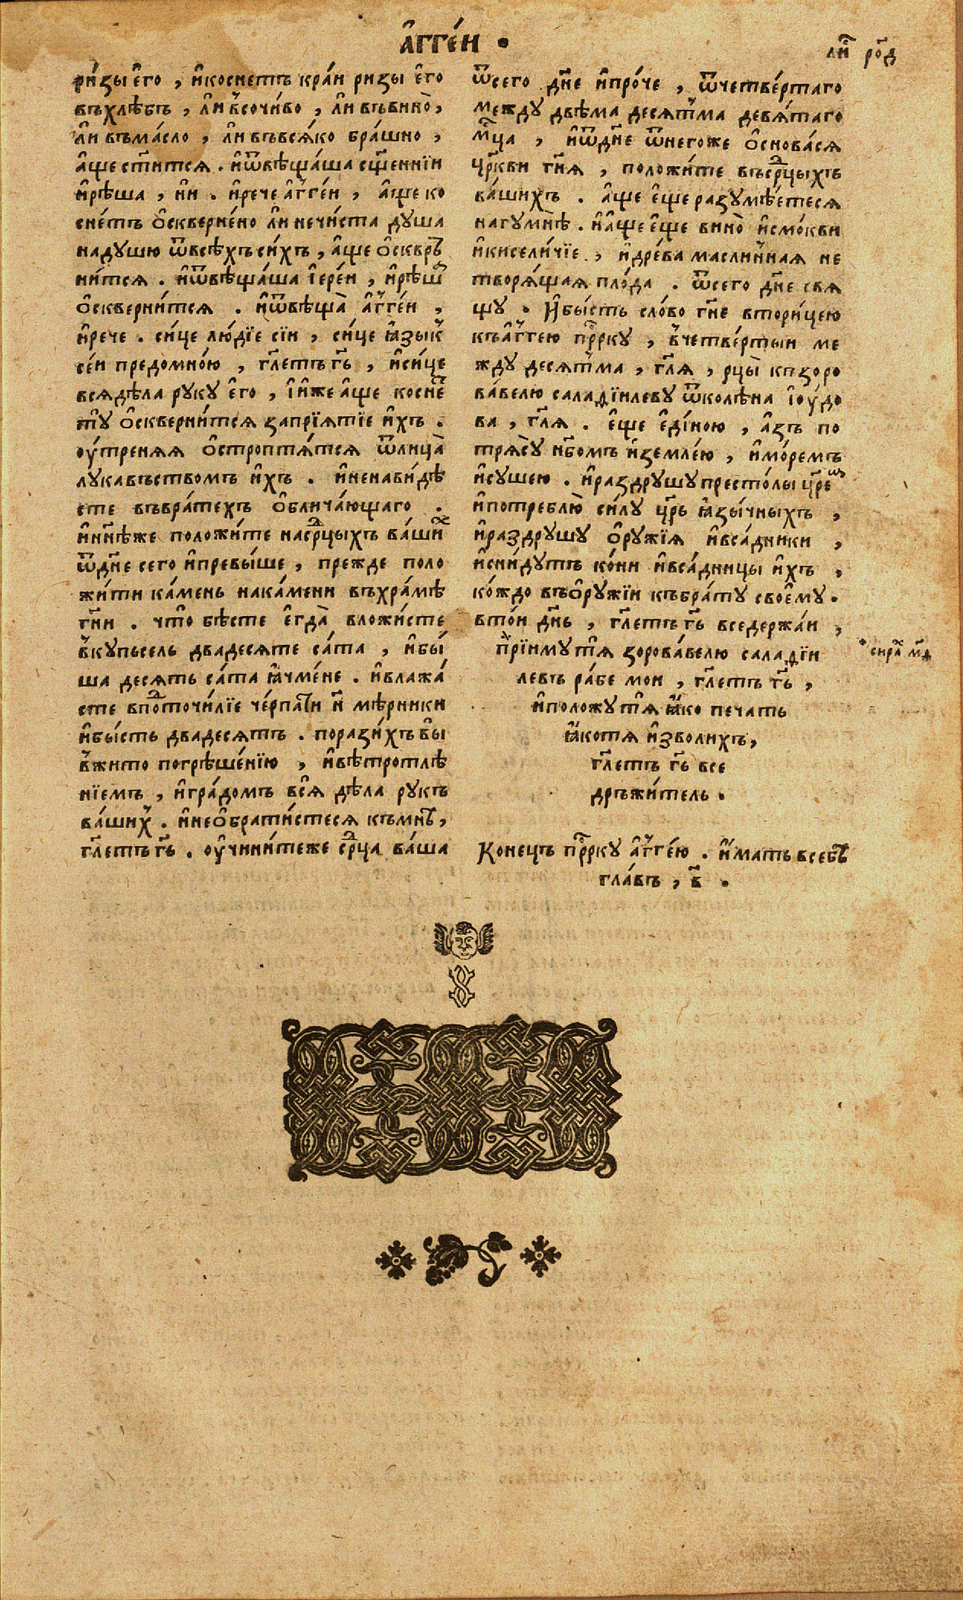 а҆гге́и •
ли́ст ро́д
ри́зы е҆го̀ , и҆коснетъ кра́и ризы е҆го
въхлѣбъ , л҆и в҆сочи́во , л҆и въвино̀ ,
л҆и въма́сло , л҆и въвсѧко бра́шно ,
а҆ще ст҃итсѧ . и҆ѿвѣща́ша сщ҃еннїи
и҆рѣша , ни . и҆рече а҆гге́и , а҆ще ко
сне́тъ ѻ҆скверне́но л҆и нечи́ста душа
надушю ѿвсѣхъси́хъ , а҆ще ѻ҆сквръ
ни́тсѧ . и҆ѿвѣща́ша і҆ере́и , и҆рѣша
ѻ҆скверни́тсѧ . и҆ѿвѣща̀ а҆гге́и ,
и҆рече . си́це лю́дїе сїи , си́це ꙗ҆зыкъ
се́и предомно́ю , гл҃етъ гь҃ , и҆си́це
всѧдѣла руку е҆го , і҆и́же а҆ще косне
ту ѻ҆скверни́тсѧ запрїѧтїе и҆хъ .
ѹ҆тренѧѧ ѻ҆строптѧ́тсѧ ѿлица̀
лукавъствомъ и҆хъ . и҆ненави́дѣ
сте въвра́техъ ѻ҆блича́ющаго .
и҆нн҃ѣже положи́те насрⷣцыхъ ва́ши
ѿдн҃е сего и҆превы́ше , прежде поло
жи́ти ка́мень нака́мени въхра́мѣ
гн҃и . что̀ бѣсте е҆гда̀ вложи́сте
в҆купьсель двадесѧте са́та , и҆бы́
ша десѧть са́та ꙗ҆чме́не . и҆влажа́
сте впⷣоточи́лїе че́рпати н҃ мѣрники
и҆бы́сть двадесѧтъ . порази́хъ вы
в҆жито погрѣше́нїю , и҆вѣтротлѣ
нїемъ , и҆гра́домъ всѧ̀ дѣла рукъ
ва́шихъ . и҆неѻ҆брати́стесѧ къмнѣ ,
гл҃етъ гь҃ . ѹ҆чини́теже срⷣца ва́ша
ѿсего дн҃е и҆про́че , ѿчетве́ртаго
между двѣма десѧтма девѧ́таго
мцⷭа , и҆ѿдн҃е ѿнегоже ѻ҆снова́сѧ
црк҃ви гн҃ѧ , положи́те въсрⷣцыхъ
ва́шихъ . а҆ще е҆ще разумѣ́етесѧ
нагумнѣ . и҆а҆ще е҆ще вино̀ и҆смо́кви
и҆киселичїе , и҆дре́ва масли́чнаѧ не
творѧ́щаѧ пло́да . ѿсего дн҃е свѧ
щу . И҆бы́сть сло́во гн҃е втори́цею
къа҆гге́ю прⷪрку , в҆четве́ртыи ме
жду десѧтма , гл҃ѧ , рцы̀ кпзоро
ва́велю салаѳїилеву ѿколѣна і҆оу́до
ва , гл҃ѧ . е҆ще е҆ди́ною , а҆зъ по
трѧ́су нб҃омъ и҆земле́ю , и҆мо́ремъ
и҆сушею . и҆раздрушу престо́лы цр҃е
и҆потреблю̀ си́лу цр҃ь ꙗ҆зы́чныхъ ,
и҆раздрушу ѻ҆ру́жїѧ и҆вса́дники ,
и҆сни́дутъ ко́ни и҆вса́дницы и҆хъ ,
ко́ждо въѻ҆ру́жїи къбра́ту свое҆му .
вто́и дн҃ь , гл҃етъ гь҃ вседержа́и ,
прїиму́тѧ зорова́велю салаѳїи
левъ ра́бе мои , гл҃етъ гь҃ ,
и҆положу́тѧ ꙗ҆́ко печать
ꙗ҆́котѧ и҆зволихъ ,
гл҃етъ гь҃ все
дръжи́тель .
Конецъ прⷪрку а҆гге́ю . и҆́мать всебѣ
гла́въ , в҃ .
сира́ мѳ